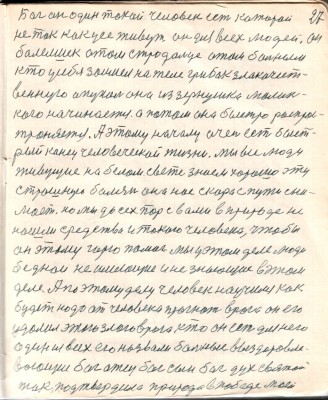 27
Бог он один такой человек ест которой
не так как усе живут он дил всех людей. он
балеющих атом страдающе атом больным
кто у себя замеил на теле грибак злакачест-
веннуго опухал она из зернушка малень-
кого начинаить. а потом она быстро распро-
троняеть. А этому началу очен ест быст-
рый канец человеческай жизни. мы все люди
живущие на белом свете знаем хорошо эту
страшную балезь она нас скора с пути сни-
маеть. но мы до сех пор с вами в природе не
нашли средства и такого человека, чтобы
он этаму гирю памог мы у этом деле люди
бедная не имеющие и не знающие в этом
деле А по этому делу человек научился как
будеть надо от человека прагнат врага он его
удалил этого злого врага кто он есть для него
один из всех его назвали больные выздоравле-
вающие бог атец бог сын бог дух святой
так подтвердила природа в победе маей